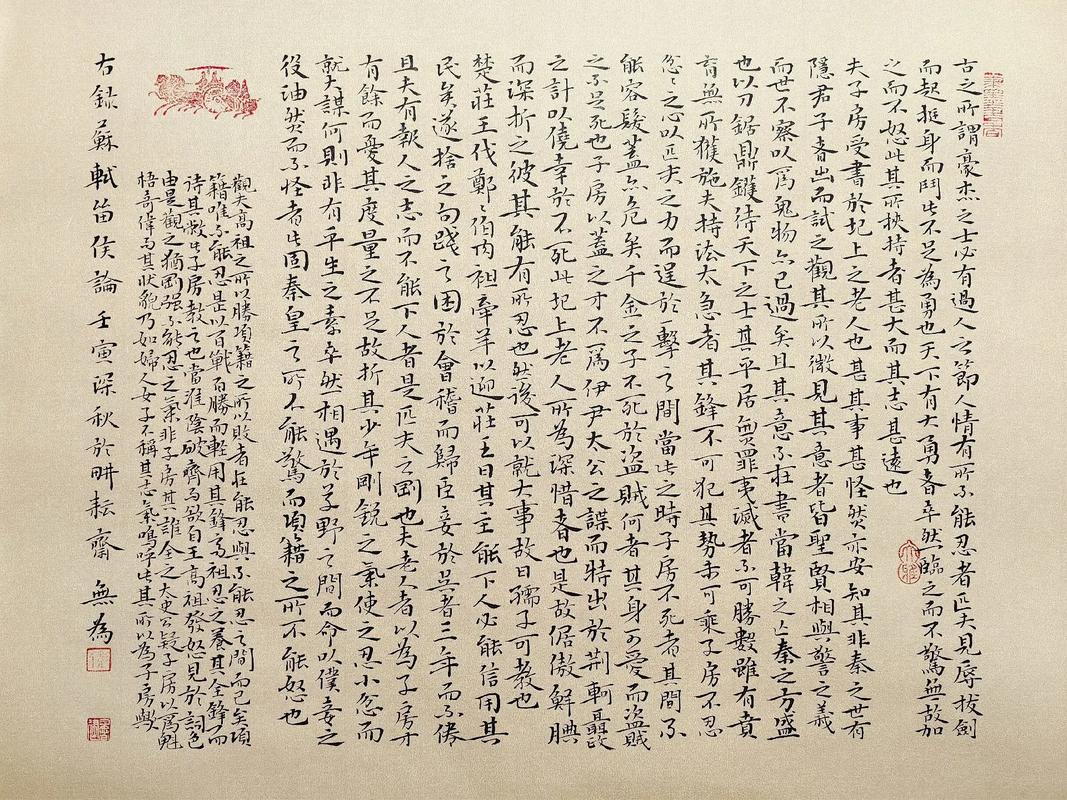 古之所謂豪杰之士必有過人之節人情有所不能忍者匹夫見辱拔劍
而起挺身而鬥此不足為勇也天下有大勇者卒然臨之而不驚無故加
之而不怒此其所挾持者甚大而其志甚遠也
夫子房受書於圯上之老人也甚其事甚怪然亦安知其非秦之世有
隱君子者出而試之觀其所以微見其意者皆聖賢相與警之義
而世不察以為鬼物亦已過矣且其意不在書當韓之亡秦之方盛
也以刀鋸鼎鑊待天下之士其平居無罪夷滅者不可勝數雖有賁
育無所獲施夫持法太急者其鋒不可犯其勢未可乘子房不忍
忿々之以匹夫之力而逞於一擊之間當此之時子房不死者其間不
能容髮蓋亦危矣千金之子不死於盜賊何者其身可愛而盜賊
之不足死也子房以蓋之才不為伊尹太公之謀而特出於荊軻聶政
之計以僥幸於不死此圯上老人所為深惜者也是故倨傲鮮腆
而深折之彼其能有所忍也然後可以就大事故曰孺子可教也
楚莊王伐鄭々伯肉袒牽羊以迎莊王曰其主能下人必能信用其
民矣遂捨之勾踐之困於會稽而歸臣妾於吳者三年而不倦
且夫有報人之志而不能下人者是匹夫之剛也夫老人者以為子房才
有餘而憂其度量之不足故折其少年剛銳之氣使之忍小忿而
就大謀何則非有平生之素卒然相遇於草野之間而命以僕妾之
役油然而不怪者此固秦皇之所不能驚而項籍之所不能怒也
觀夫高祖之所以勝項籍之所以敗者在能忍與不能忍之間而已矣項
籍唯不能忍是以百戰百勝而輕用其鋒高祖忍之養其全鋒而
待其敝此子房教之也當淮陰破齊而欲自王高祖發怒見於詞色
由是觀之猶剛強不能忍之氣非子房其誰全之太史公疑子房以為魁
梧奇偉而其狀貌乃如婦人女子不稱其志氣嗚呼此其所以為子房歟
右錄蘇軾留侯論壬寅深秋於耕耘齋無為